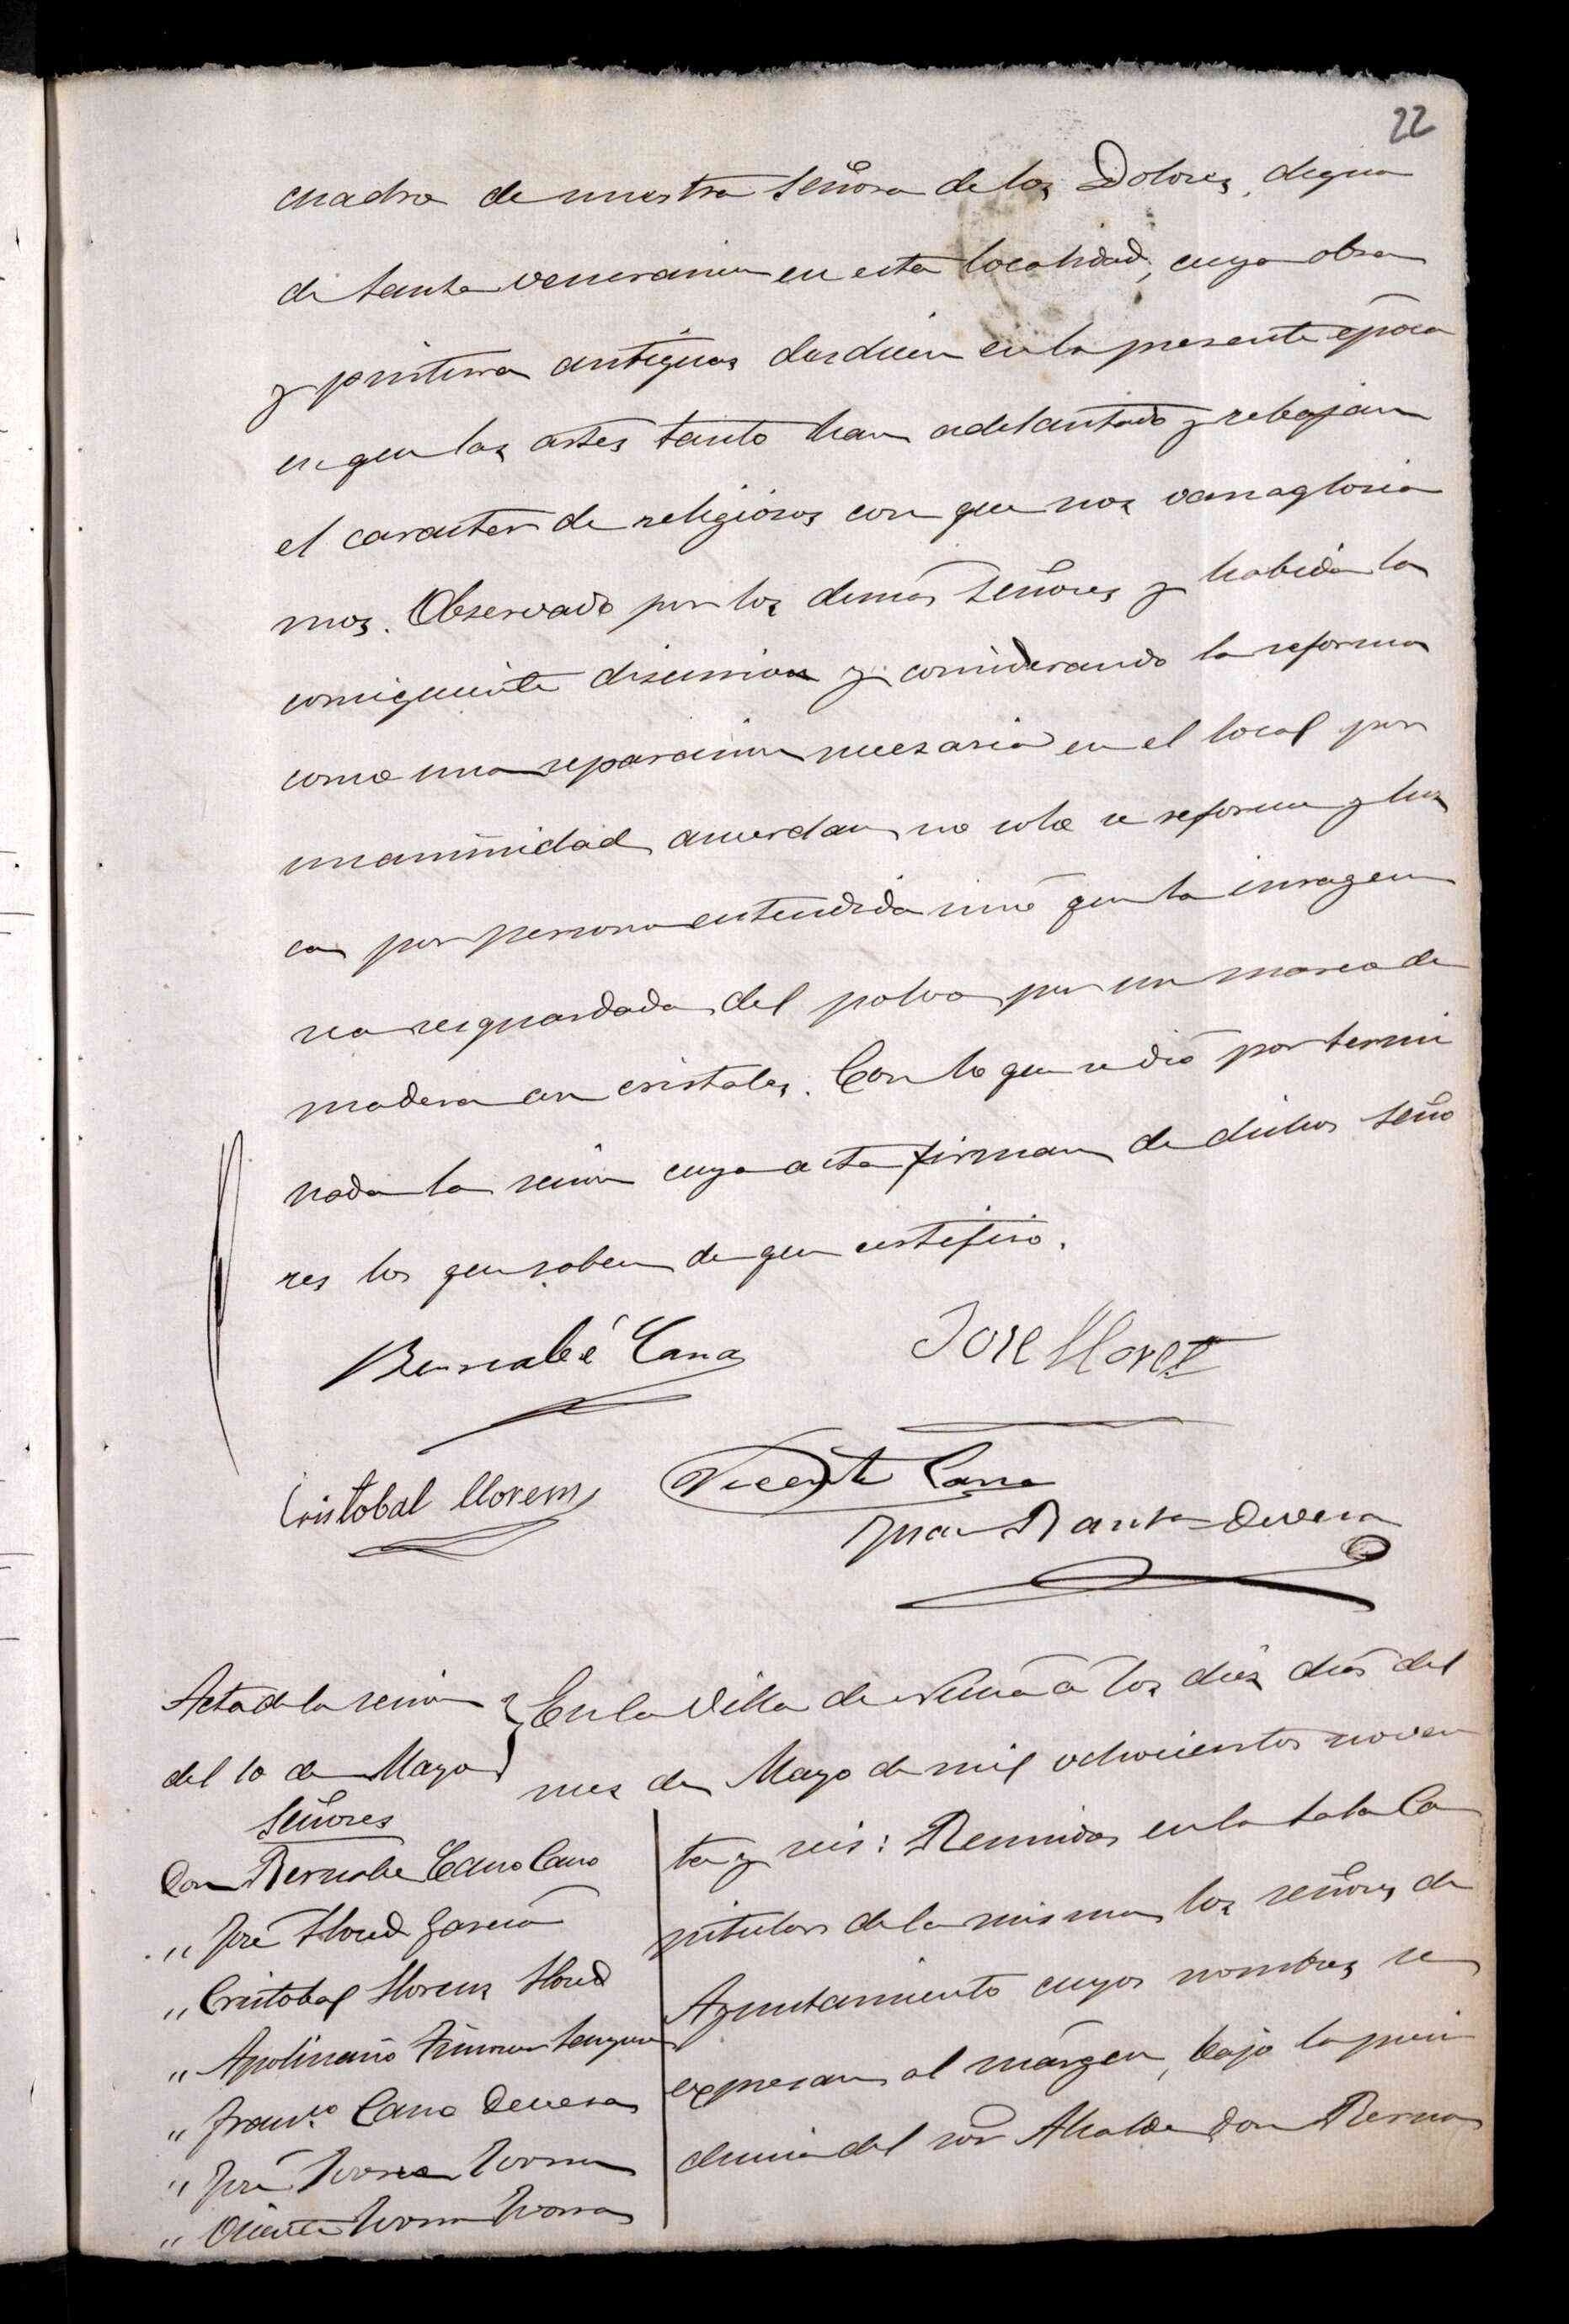 22
cuadro de nuestra Señora de los Dolores, digna
de tanta veneracion en esta localidad, cuya obra
y pintura antiguas desdicen en la presente época
en que las artes tanto han adelantado y rebajan
el caracter de religiosos con que nos vanagloria
mos. Observado por los demás Señores y habida la
consiguiente discusion y considerando la reforma
como una reparacion necesaria en el local por
unanimidad acuerdan no solo se reforme y luz
ca por persona entendida sinó que la imagen
sea resguardada del polvo por un marco de
madera con cristales. Con lo que se dió por termi
nada la sesion cuya acta firman de dichos Seño
res los que saben de que certifico.
Bernabé Cano
Jose Lloret
Cristobal Llorens
Vicente Cano
Juan Bauta Devesa
Acta de la sesion
del 10 de Mayo
Señores
Don Bernabe Cano Cano
" José Lloret Garcia
" Cristobal Llorens Lloret
" Apolinario
" Franco Cano Devesa
" José Ivorra Ivorra
" Vicente Ivorra Ivorra
En la Villa de á los diez dias del
mes de Mayo de mil ochocientos noven
ta y seis: Reunidos en la Sala Ca
pitular de la misma los señores de
Ayuntamiento cuyos nombres se
expresan al márgen, bajo la presi
dencia del Sor Alcalde Don Berna